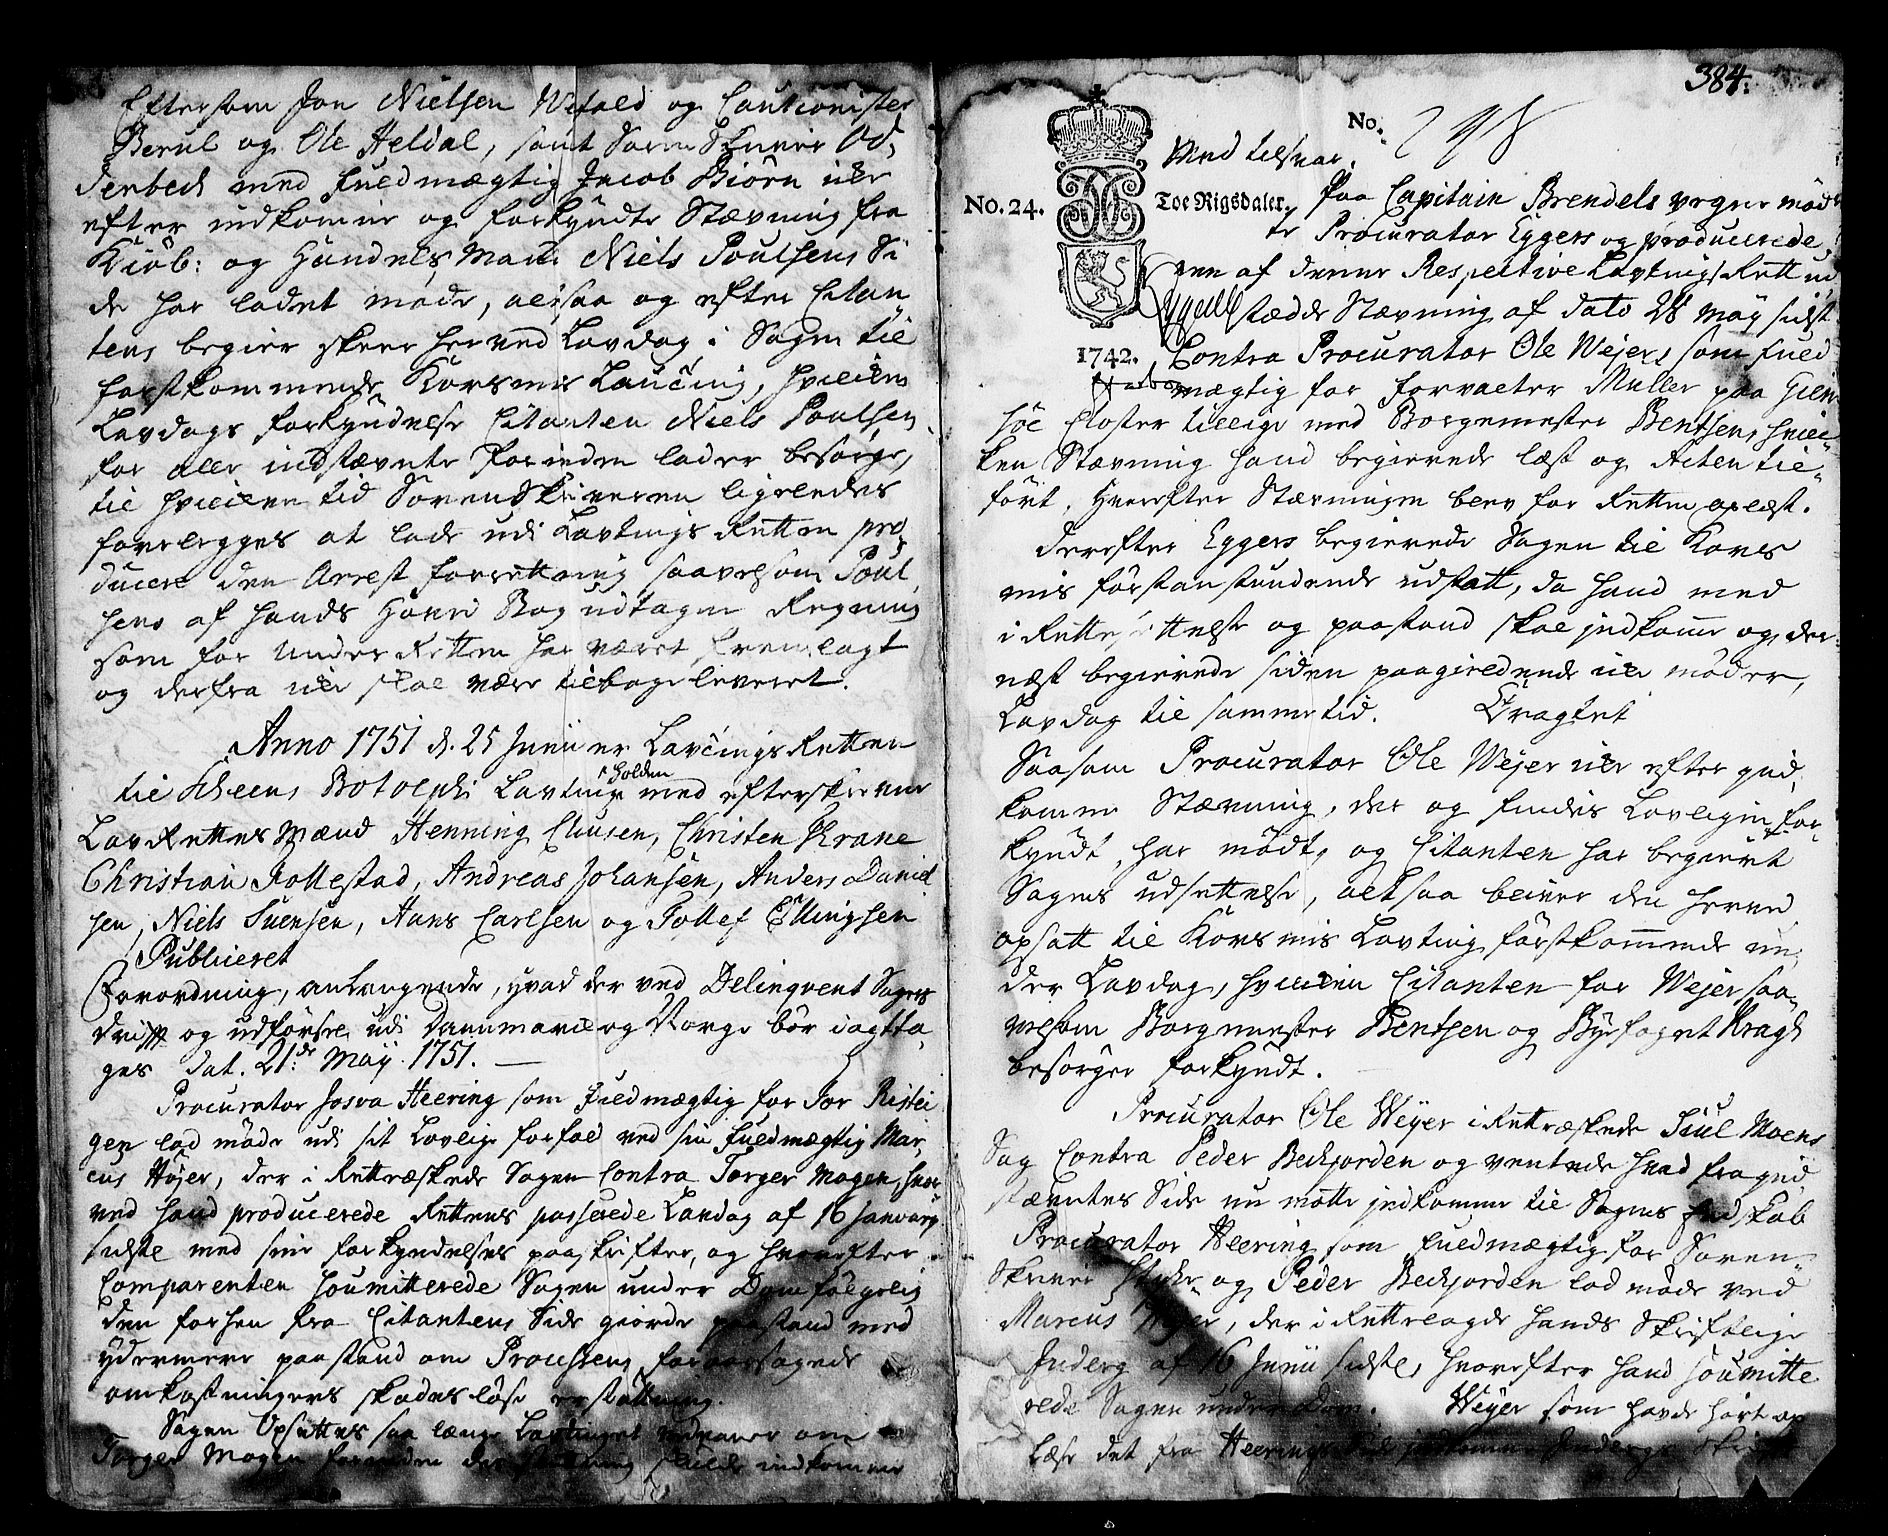 Eftersom Jon Nielsen Wefald og Cautionister
Berul og Ole Heldal, samt Soren Skriver Od,
Derbech med Fuldmægtig Jacob Biørn icke
efter indkomne og forkyndte Stævning fra
Kiøb: og Handels Mand Niels Poulsens Si
de har ladet møde, altsaa og efter Citan
tens begier skeer herved Lavdag i Sagen til
førstkommende Korsmis Lauting, hvilken
Lavdags forkyndelse Citanten Niels Poulsen
for alle indstævnte forinden lader besørge,
til hvilken tid Sorenskriveren ligeledes
forelegges at lade udi Lavtings Retten pro
ducere den Arrest forretning saavelsom Poul
sens af hands Bog udtagne Regning
som for Under Retten har været fremlagt
og derfra icke skal være tilbage leveret.
Anno 1751 d. 25 Junii er Lavtings Retten
til Scheens Botolphi Lavting holden med efterskrevne
LavRettes Mænd Henning Clausen, Christen Krane
Christian Rollestad, Andreas Johansen, Anders Daniel
sen, Niels Svensen, Hans Carlsen og Tollef Ellingsen
Publiceret
Forordning, anlangende, hvad der ved Delinqvent Sagers
drifft og udførsel udi Dannmarck og Norge bør iagtta
ges dat. 21de Maij 1751.
Procurator Josva Heering som Fuldmægtig for Jor Ristei
gen lod møde udi sit Lovlige forfald ved sin Fuldmægtig Mar,
cus Høyer, der i Rettræskede Sagen Contra Torger Mogen, hvor
ved hand producerede Rettens passerede Lavdag af 16 January
sidste med sine forkyndelses paaskrifter, og hvorefter
Comparenten soumitterede Sagen under Dom følgelig
den forhen fra Citantens Side giorde paastand med
ydermere paastand om Processens foraarsagede
omkostningers skadesløse erstattning.
Sagen Opsettes saa længe Lavtinget vedvarer om
Torger Mogen forinden der skulde indkomme
384.
No.
Med tilsvar.
No. 24.
Toe Rigsdaler.
Paa Capitain Brendels vegne mød
te Procurator Eggers og producerede
een af denne Respective Lavtings Rett ud
stædde Stævning af dato 28 May sidst
1742.
Contra Procurator Ole Wejer som Fuld
mægtig for Forvalter Muller paa Giem
søe Closter tillige med Borgemester Bentsen, hvil
ken Stævning hand begierede læst og Acten til,
ført, hvorefter Stævningen blev for Retten oplæst.
Derefter Eggers begierede Sagen til Kors
mis førstanstundende udsatt, da hand med
i Rettesættelse og paastand skal indkomme og der
næst begierede siden paagieldende icke møder,
Lavdag til samme tid. Eragtet
Saasom Procurator Ole Wejer icke efter ind,
komne Stævning, der og findis Lovligen for
kyndt, har mødt, og Citanten har begiert
Sagens udsettelse, altsaa bliver den herved
opsatt til Korsmis Lavting førstkommende un,
der Lavdag, hvilken Citanten for Wejer saa,
velsom Borgmester Bentsen og Byefoget Kragh
besørger forkyndt.
Procurator Ole Weyer i Rettræskede Juul Moens
Sag Contra Peder Bechjorden og ventede hvad fra ind
stævntes Side nu motte indkomme til Sagens
Procurator Heering som Fuldmægtig for Soren,
Skriver og Peder Bechjorden lod møde ved
Marcus Høyer, der i Rettelagde hands Skriftlige
Indlæg af 16 Junii sidst, hvorefter hand soumitte
rede Sagen under Dom. Weyer som havde hørt op
læse det fra Heering indkomne Indlæg